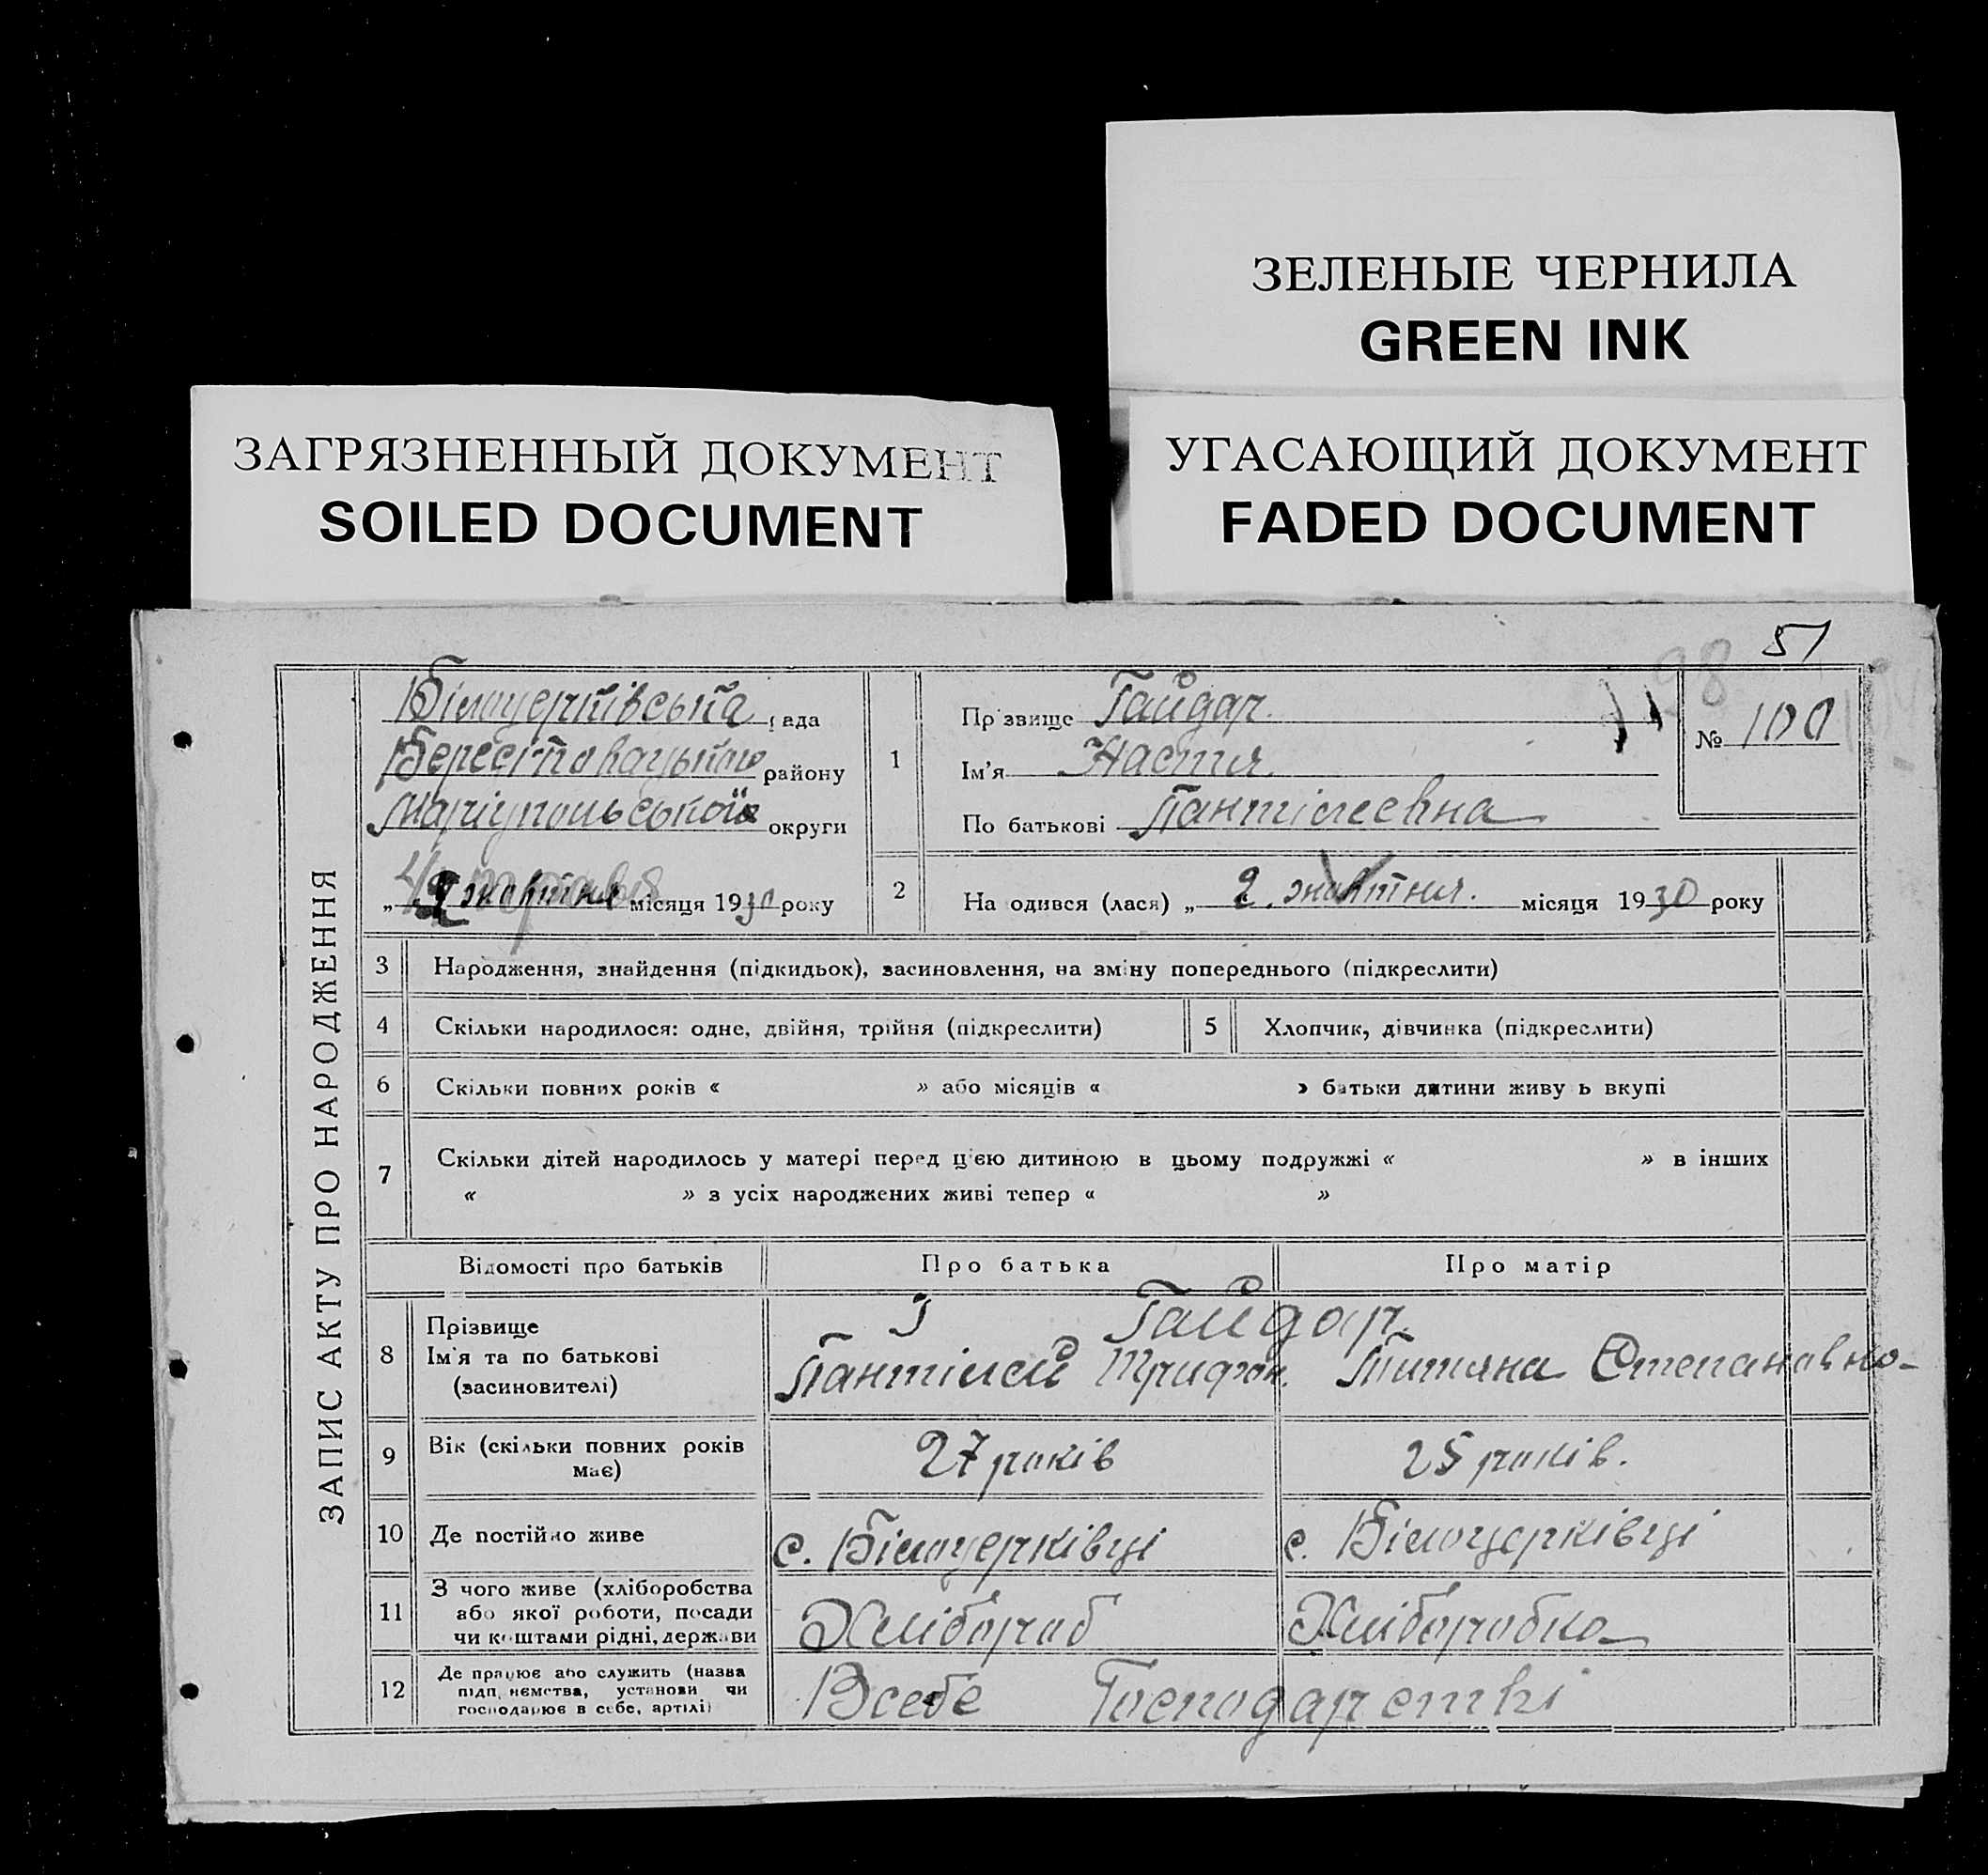 ЗЕЛЕНЫЕ ЧЕРНИЛА
GREEN INK
ЗАГРЯЗНЕННЫЙ ДОКУМЕНТ
SOILED DOCUMENT
УГАСАЮЩИЙ ДОКУМЕНТ
FADED DOCUMENT
51
98
ЗАПИС АКТУ ПРО НАРОДЖЕННЯ
Білоцерківська рада
Берестовацького району
Маріупольської округи
жовтня місяця 1930 року
1
Прізвище Гайдар.
Ім'я Настя.
По батькові Пантілеевна
№ 100
2
Народився (лася) „ 2. жовтня. місяця 1930 року
3 Народження, знайдення (підкидьок), засиновлення, на зміну попереднього (підкреслити)
4 Скільки народилося: одне, двійня, трійня (підкреслити)
5 Хлопчик, дівчинка (підкреслити)
6 Скільки повних років « » або місяців « » батьки дитини живуть вкупі
7 Скільки дітей народилось у матері перед цією дитиною в цьому подружжі « » в інших
« » з усіх народжених живі тепер « »
Відомості про батьків
Про батька
Про матір
8 Прізвище
Ім'я та по батькові
(засиновителі)
Гайдар.
Пантілей Трифон. Титяна Степановна
9 Вік (скільки повних років
має)
27 років
25 років.
10 Де постійно живе
с. Білоцерківці
с. Білоцерківці
11 З чого живе (хліборобства
або якої роботи, посади
чи коштами рідні, держави
Хлібороб
Хліборобка
12 Де працює або служить (назва
підприємства, установи чи
господарює в себе, артілі)
Всебе Господарстві